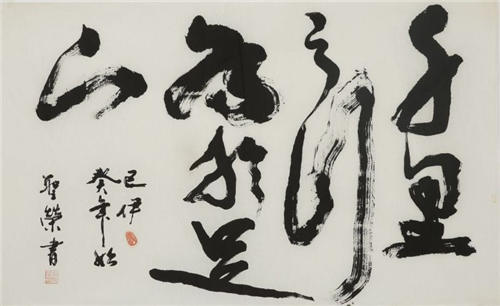 千里
之行
始於足
下
癸巳
年伊
始
聖榮書